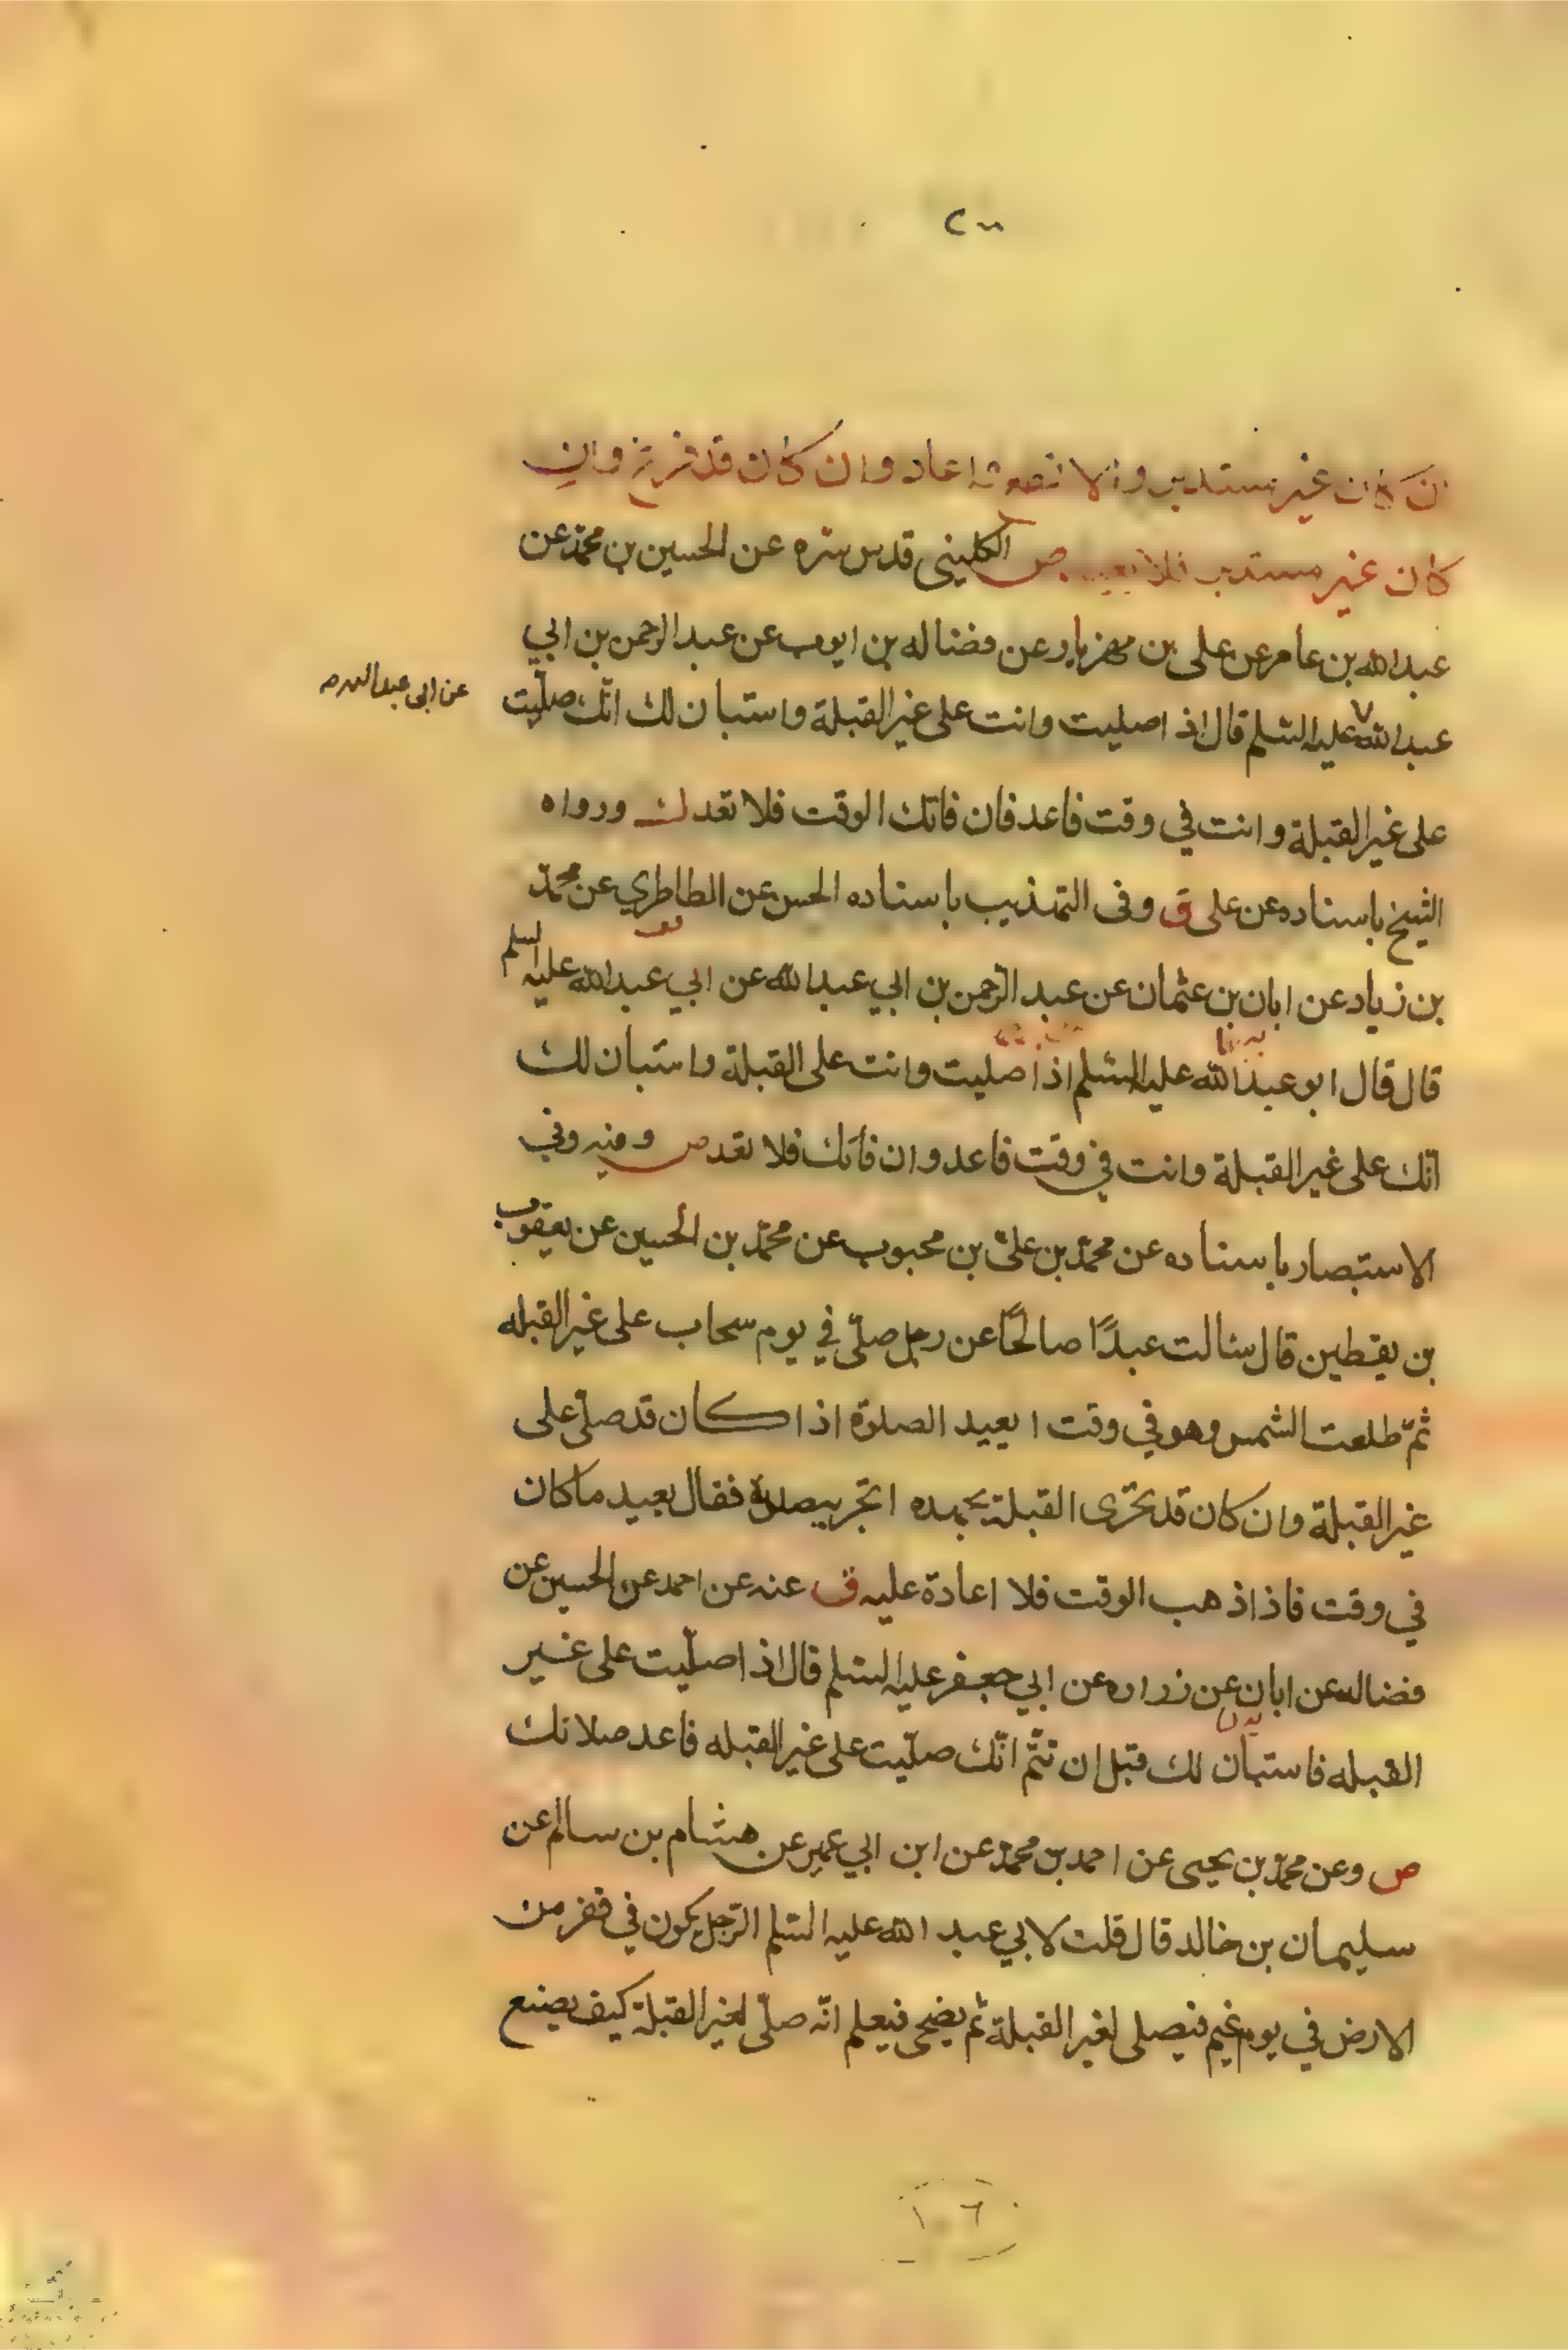 ان كان غير مستدبر والا اعاد وان كان قد فرغ وان
كان غير مستدبر فلا يعيد ص الكليني قدس سره عن الحسين بن محمد عن
عبد الله بن عامر عن علي بن مهزيار عن فضاله بن ايوب عن عبد الرحمن بن ابي
عن ابي عبد الله
عبد الله عليه السلم قال اذا صليت وانت على غير القبلة واستبان لك انك صليت
على غير القبلة وانت في وقت فاعد فان فاتك الوقت فلا تعد ورواه
الشيخ باسناده عن علي ق وفي التهذيب باسناده الحسن عن الطاطري عن محمد
بن زياد عن ابان بن عثمان عن عبد الرحمن بن ابي عبد الله عن ابي عبد الله عليه السلم
قال قال ابو عبد الله عليه السلم اذا صليت وانت على القبلة واستبان لك
انك على غير القبلة وانت في وقت فاعد وان فاتك فلا تعد ص ومنه وفي
الاستبصار باسناده عن محمد بن علي بن محبوب عن محمد بن الحسين عن يعقوب
بن يقطين قال سئالت عبدًا صالحًا عن رجل صلّى في يوم سحاب على غير القبله
ثمّ طلعت الشمس وهو في وقت ايعيد الصلوة اذا كان قد صلّى على
غير القبلة وان كان قد تحرّى القبلة بجهده اتجزيه صلاته فقال يعيد ما كان
في وقت فاذا ذهب الوقت فلا اعادة عليه ق عنه عن احمد عن الحسين عن
فضاله عن ابان عن زراره عن ابي جعفر عليه السلم قال اذا صلّيت على غير
القبله فاستبان لك قبل ان تتمّ انّك صلّيت على غير القبله فاعد صلاتك
ص وعن محمّد بن يحيى عن احمد بن محمّد عن ابن ابي عمير عن هشام بن سالم عن
سليمان بن خالد قال قلت لابي عبد الله عليه السلم الرّجل يكون في قفر من
الارض في يوم غيم فيصلى لغير القبلة ثم يضحى فيعلم انّه صلّى لغير القبلة كيف يصنع
١٠٦